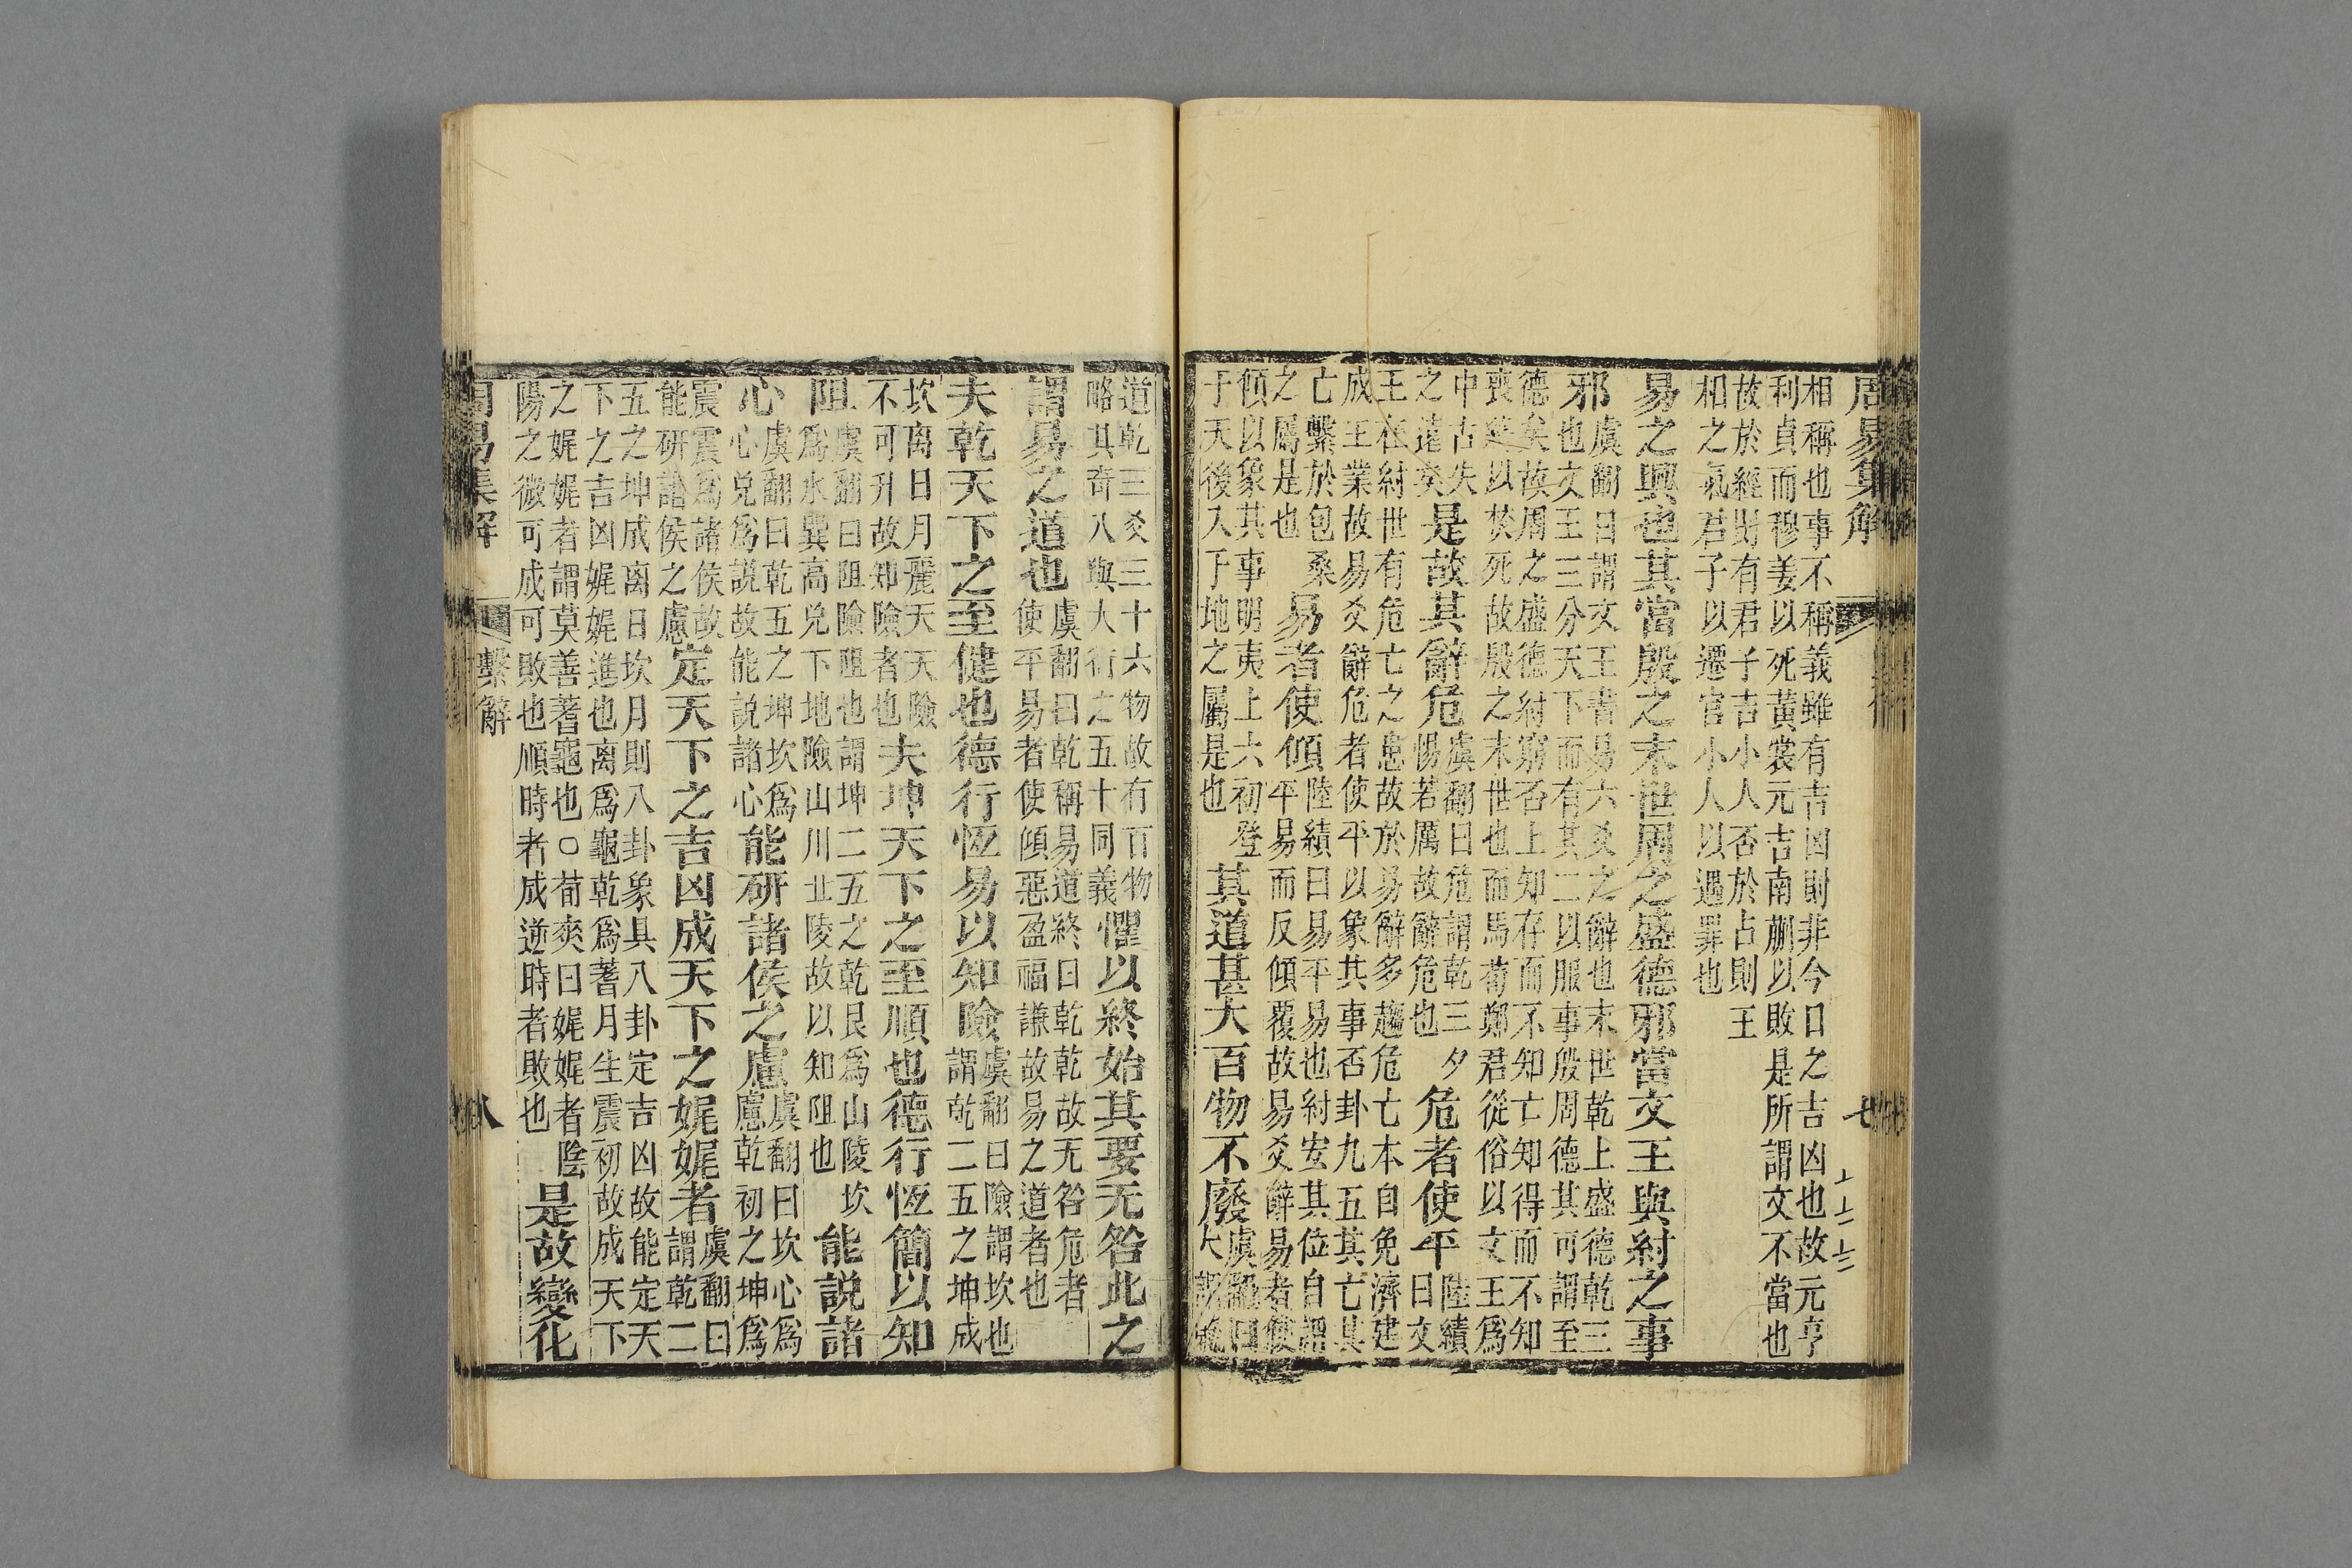 周易集解
七
相稱也事不稱義雖有吉凶則非今日之吉凶也故元亨
利貞而穆姜以死黃裳元吉南蒯以敗是所謂文不當也
故於經則有君子吉小人否於占則王
相之氣君子以遷官小人以遇罪也
易之興也其當殷之末世周之盛德邪當文王與紂之事
邪
虞翻曰謂文王書易六爻之辭也末世乾上盛德乾三
也文王三分天下而有其二以服事殷周德其可謂至
德矣故周之盛德紂窮否上知存而不知亡知得而不知
喪終以焚死故殷之末世也而馬荀鄭君從俗以文王爲
中古失
之遠矣
是故其辭危
虞翻曰危謂乾三夕
惕若厲故辭危也
危者使平
陸績
曰文
王在紂世有危亡之患故於易辭多趨危亡本自免濟建
成王業故易爻辭危者使平以象其事否卦九五其亡其
亡繫於包桑
之屬是也
易者使傾
陸績曰易平易也紂安其位自謂
平易而反傾覆故易爻辭易者使
傾以象其事明夷上六初登
于天後入于地之屬是也
其道甚大百物不廢
虞翻曰
大謂乾
道乾三爻三十六物故有百物
略其奇八與大衍之五十同義
懼以終始其要无咎此之
謂易之道也
虞翻曰乾稱易道終日乾乾故无咎危者
使平易者使傾惡盈福謙故易之道者也
夫乾天下之至健也德行恆易以知險
虞翻曰險謂坎也
謂乾二五之坤成
坎离日月麗天天險
不可升故知險者也
夫坤天下之至順也德行恆簡以知
阻
虞翻曰阻險阻也謂坤二五之乾艮爲山陵坎
爲水巽高兌下地險山川丠陵故以知阻也
能説諸
心
虞翻曰乾五之坤坎爲
心兌爲説故能説諸心
能研諸侯之慮
虞翻曰坎心爲
慮乾初之坤爲
震震爲諸侯故
能研諸侯之慮
定天下之吉凶成天下之娓娓者
虞翻曰
謂乾二
五之坤成离日坎月則八卦象具八卦定吉凶故能定天
下之吉凶娓娓進也离爲龜乾爲蓍月生震初故成天下
之娓娓者謂莫善蓍龜也○荀爽曰娓娓者陰
陽之微可成可敗也順時者成逆時者敗也
是故變化
周易集解
繫辭
八